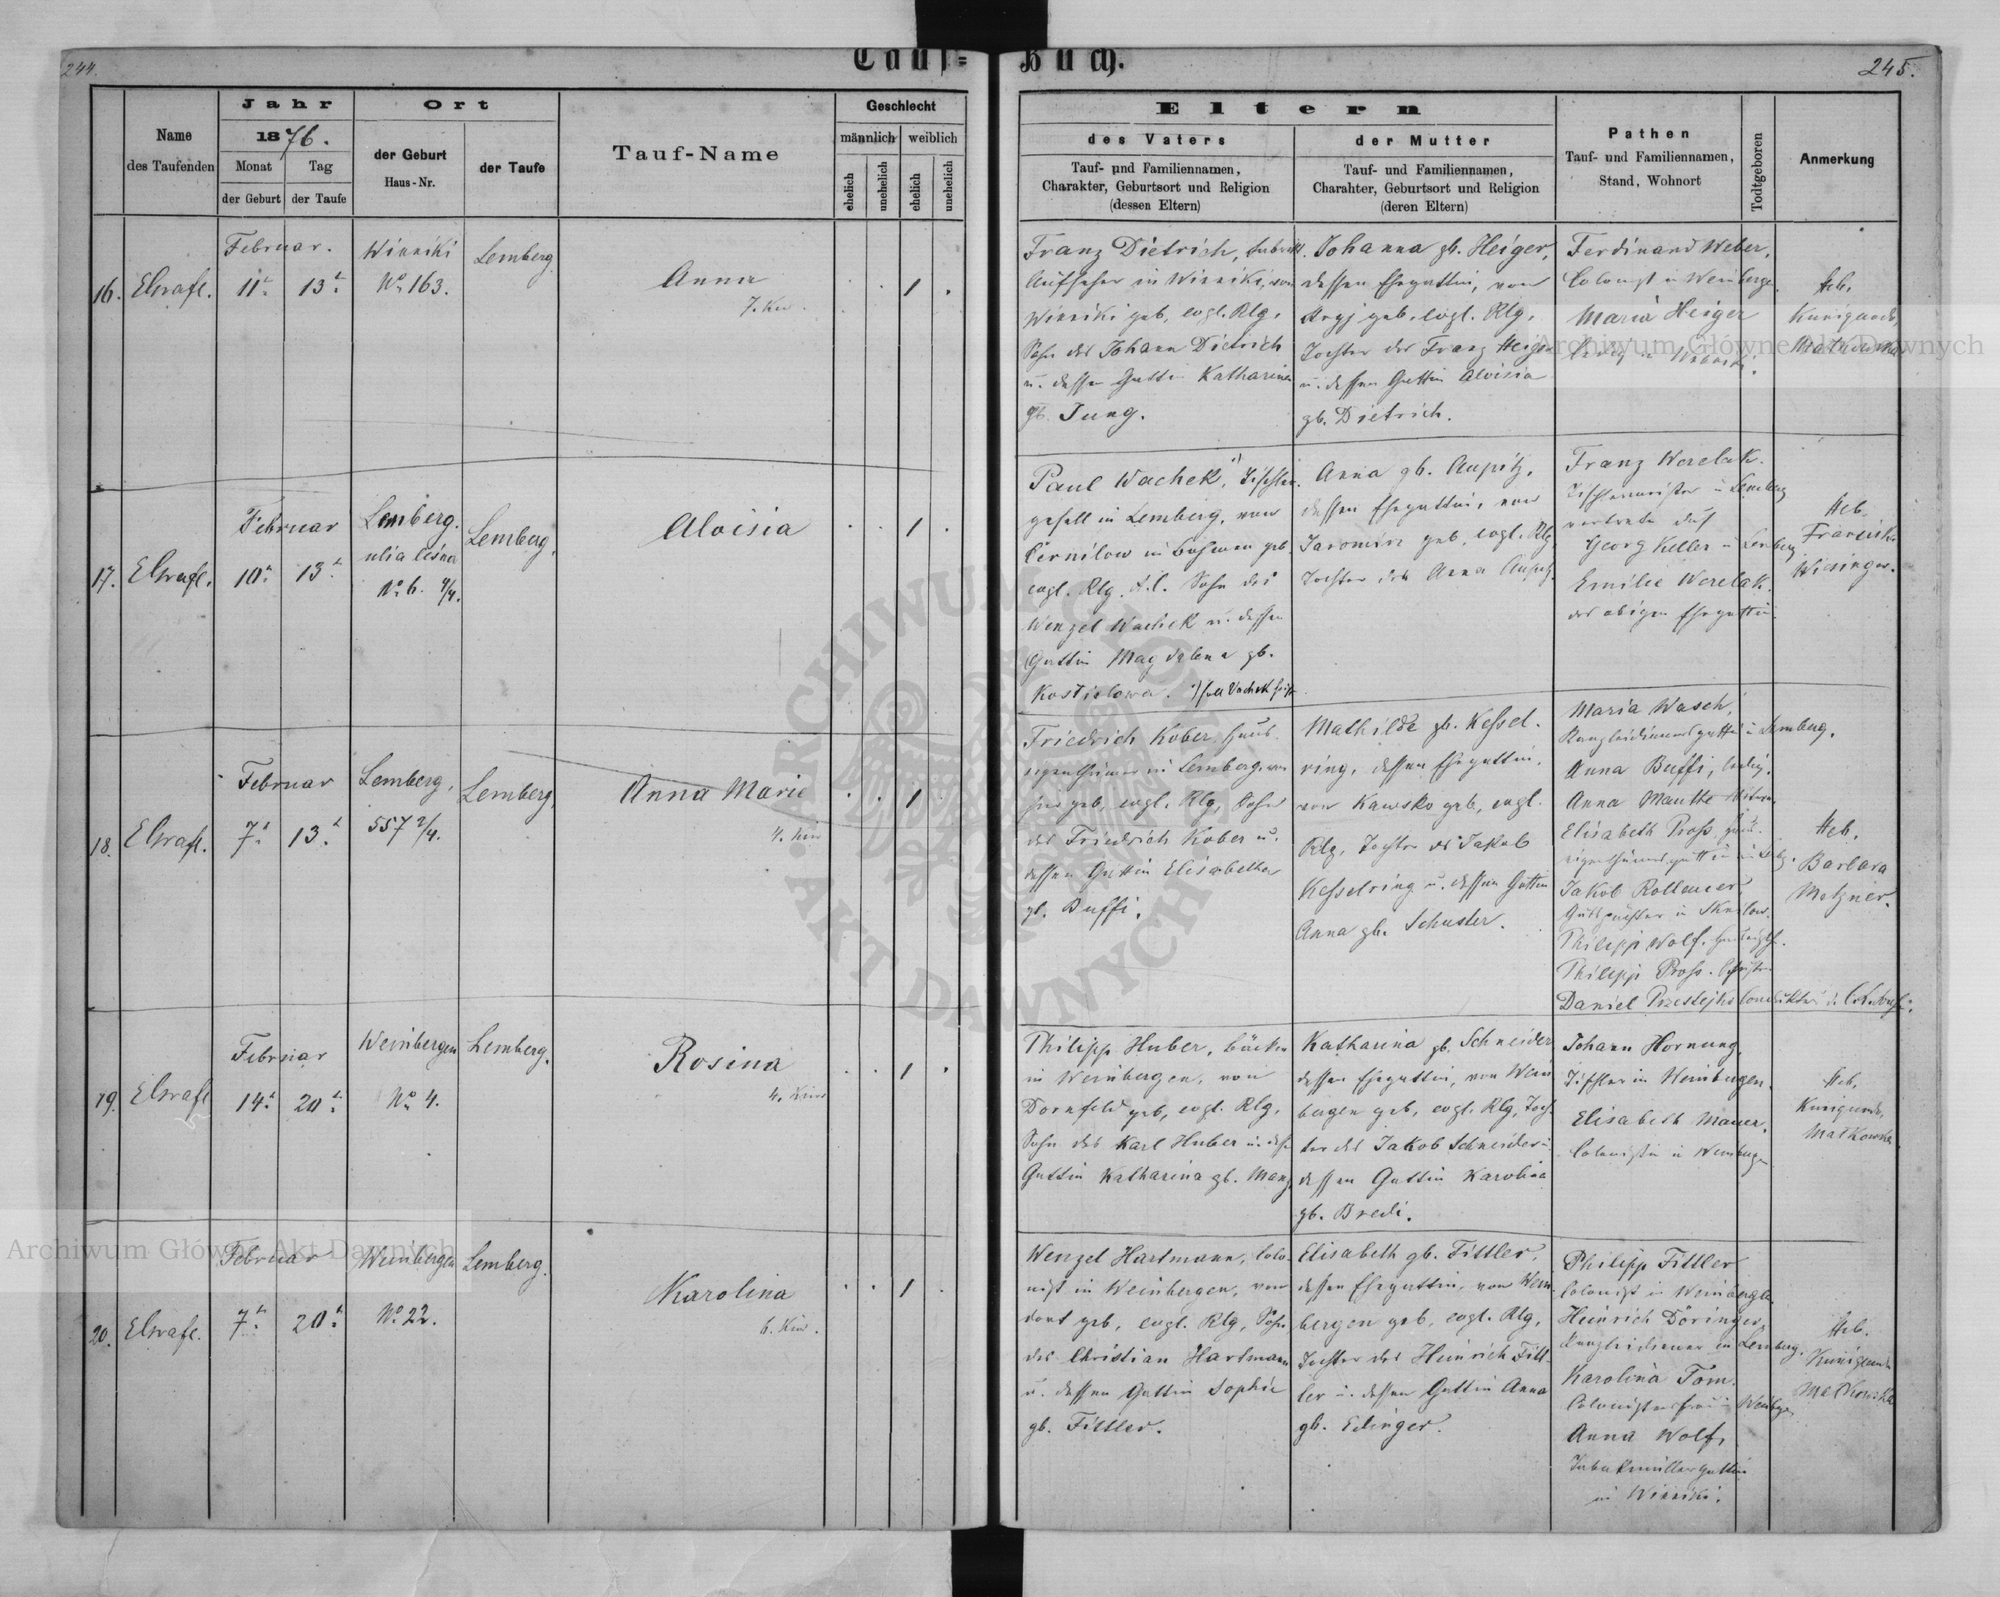 244.
Tauf-
Buch.
245.
Name
des Taufenden
Jahr
1876.
Monat
Tag
der Geburt
der Taufe
Ort
der Geburt
Haus-Nr.
der Taufe
Tauf-Name
Geschlecht
männlich
weiblich
ehelich
unehelich
ehelich
unehelich
Eltern
des Vaters
Tauf- und Familiennamen,
Charakter, Geburtsort und Religion
(dessen Eltern)
der Mutter
Tauf- und Familiennamen,
Charahter, Geburtsort und Religion
(deren Eltern)
Pathen
Tauf- und Familiennamen,
Stand, Wohnort
Todtgeboren
Anmerkung
16.
Februar.
11t.
13t.
Winniki
No. 163.
Lemberg
Anna
7. Kin.
1
Franz Dietrich,
Aufseher in Winniki, von
Winniki geb, evgl. Rlg,
Sohn des Johann Dietrich
u. dessen Gattin Katharina
gb. Jung.
Johanna gb. Heiger,
dessen Ehegattin, von
Stryj geb. evgl. Rlg,
Tochter des Franz Heiger
u. dessen Gattin Aloisia
gb. Dietrich.
Ferdinand Weber,
Colonist in Weinbergen.
Maria Heiger
ledig in Winniki.
Heb.
Kunigunde
Matkowska
17.
Februar
10t.
13t.
Lemberg.
ulia leśna
No. 6. 4/4.
Lemberg.
Aloisia
1
Paul Wachek, Tischler-
gesell in Lemberg, von
Černilow in Böhmen geb.
evgl. Rlg. Sohn des
Wenzel Wachek u. dessen
Gattin Magdalena gb.
Kostielowa.
Anna gb. Aupitz,
dessen Ehegattin, von
Jaromirz geb, evgl. Rlg,
Tochter der Anna Aupitz.
Franz Werelak.
Tischlermeister in Lemberg
Georg Keller in Lemberg
Emilie Werelak.
des obigen Ehegattin.
Heb.
Wiesinger.
18.
Februar
7t.
13t.
Lemberg,
557 2/4.
Lemberg
Anna Marie
4. Kin
1
Friedrich Kober, Haus-
eigenthümer in Lemberg, von
hier geb, evgl. Rlg, Sohn
des Friedrich Kober u.
dessen Gattin Elisabetha
gb. Buffi.
Mathilde gb. Kessel-
ring, dessen Ehegattin,
von Kawsko geb, evgl.
Rlg, Tochter des Jakob
Kesselring u. dessen Gattin
Anna gb. Schuster.
Maria Wasch,
Kanzleidienersgattin in Lemberg.
Anna Buffi, ledig.
Anna Mauthe
Elisabeth Pross,
Jakob Rollauer,
Philipp Wolf.
Philipp Pross.
Daniel
Heb.
Barbara
Metzner.
19.
Februar
14t.
20t.
Weinbergen
No 4.
Lemberg.
Rosina
4. Kin
1
Philipp Huber, Bäcker
in Weinbergen, von
Dornfeld geb, evgl. Rlg,
Sohn des Karl Huber u. dessen
Gattin Katharina gb. Manz
Katharina gb. Schneider
dessen Ehegattin, von Wein-
bergen geb, evgl. Rlg, Toch-
ter des Jakob Schneider u.
dessen Gattin Karolina
gb. Bredi.
Johann Hornung,
Tischler in Weinbergen.
Elisabeth Mauer,
Colonistin in Weinbergen
Heb.
Kunigunde
Matkowska
20.
Februar
7t.
20t.
Weinbergen
No 22.
Lemberg.
Karolina
6. Kin.
1
Wenzel Hartmann, Colo-
nist in Weinbergen, von
dort geb, evgl. Rlg, Sohn
des Christian Hartmann
u. dessen Gattin Sophie
gb. Fittler.
Elisabeth gb. Fittler,
dessen Ehegattin, von Wein-
bergen geb, evgl. Rlg,
Tochter des Heinrich Fitt-
ler u. dessen Gattin Anna
gb. Edinger.
Philipp Fittler
Colonist in Weinbergen.
Heinrich Döringer,
Kanzleidiener in Lemberg.
Karolina Tom.
Colonistensfrau in Weinbgn
Anna Wolf,
in Winniki.
Heb.
Kunigunde
Matkowska
Archiwum Główne Akt Dawnych
Archiwum Główne Akt Dawnych
ARCHIWUM GŁÓWNE AKT DAWNYCH